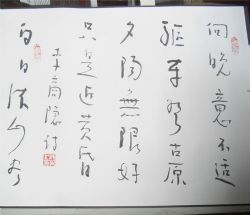 向晚意不適
驅車登古原
夕陽無限好
只是近黄昏
李商隱诗
白日